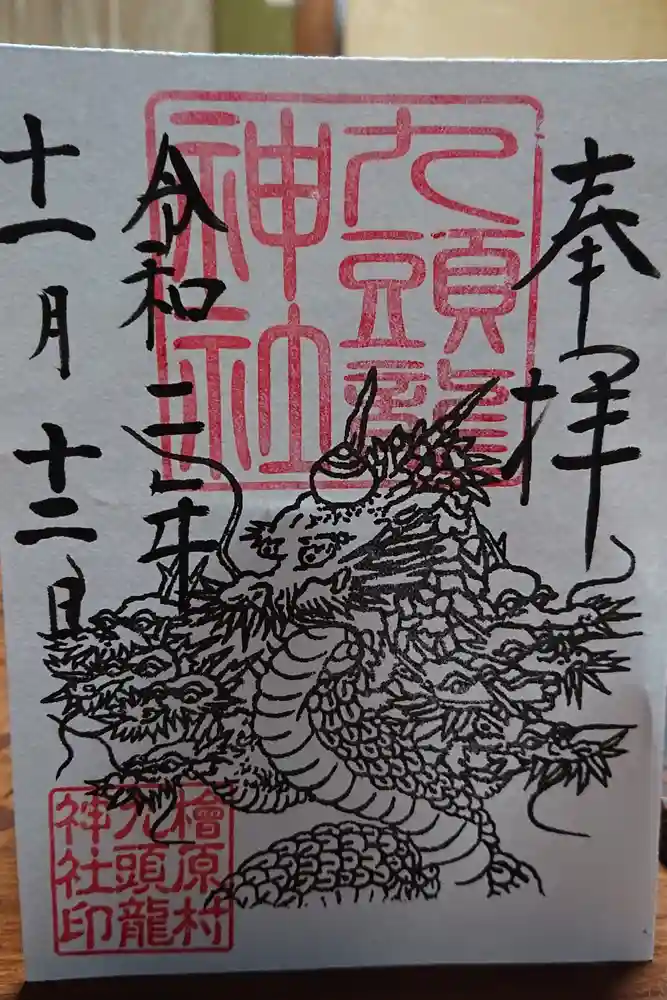 奉拝
九頭龍
神社
令和三年
十一月十二日
檜原村
九頭龍
神社印